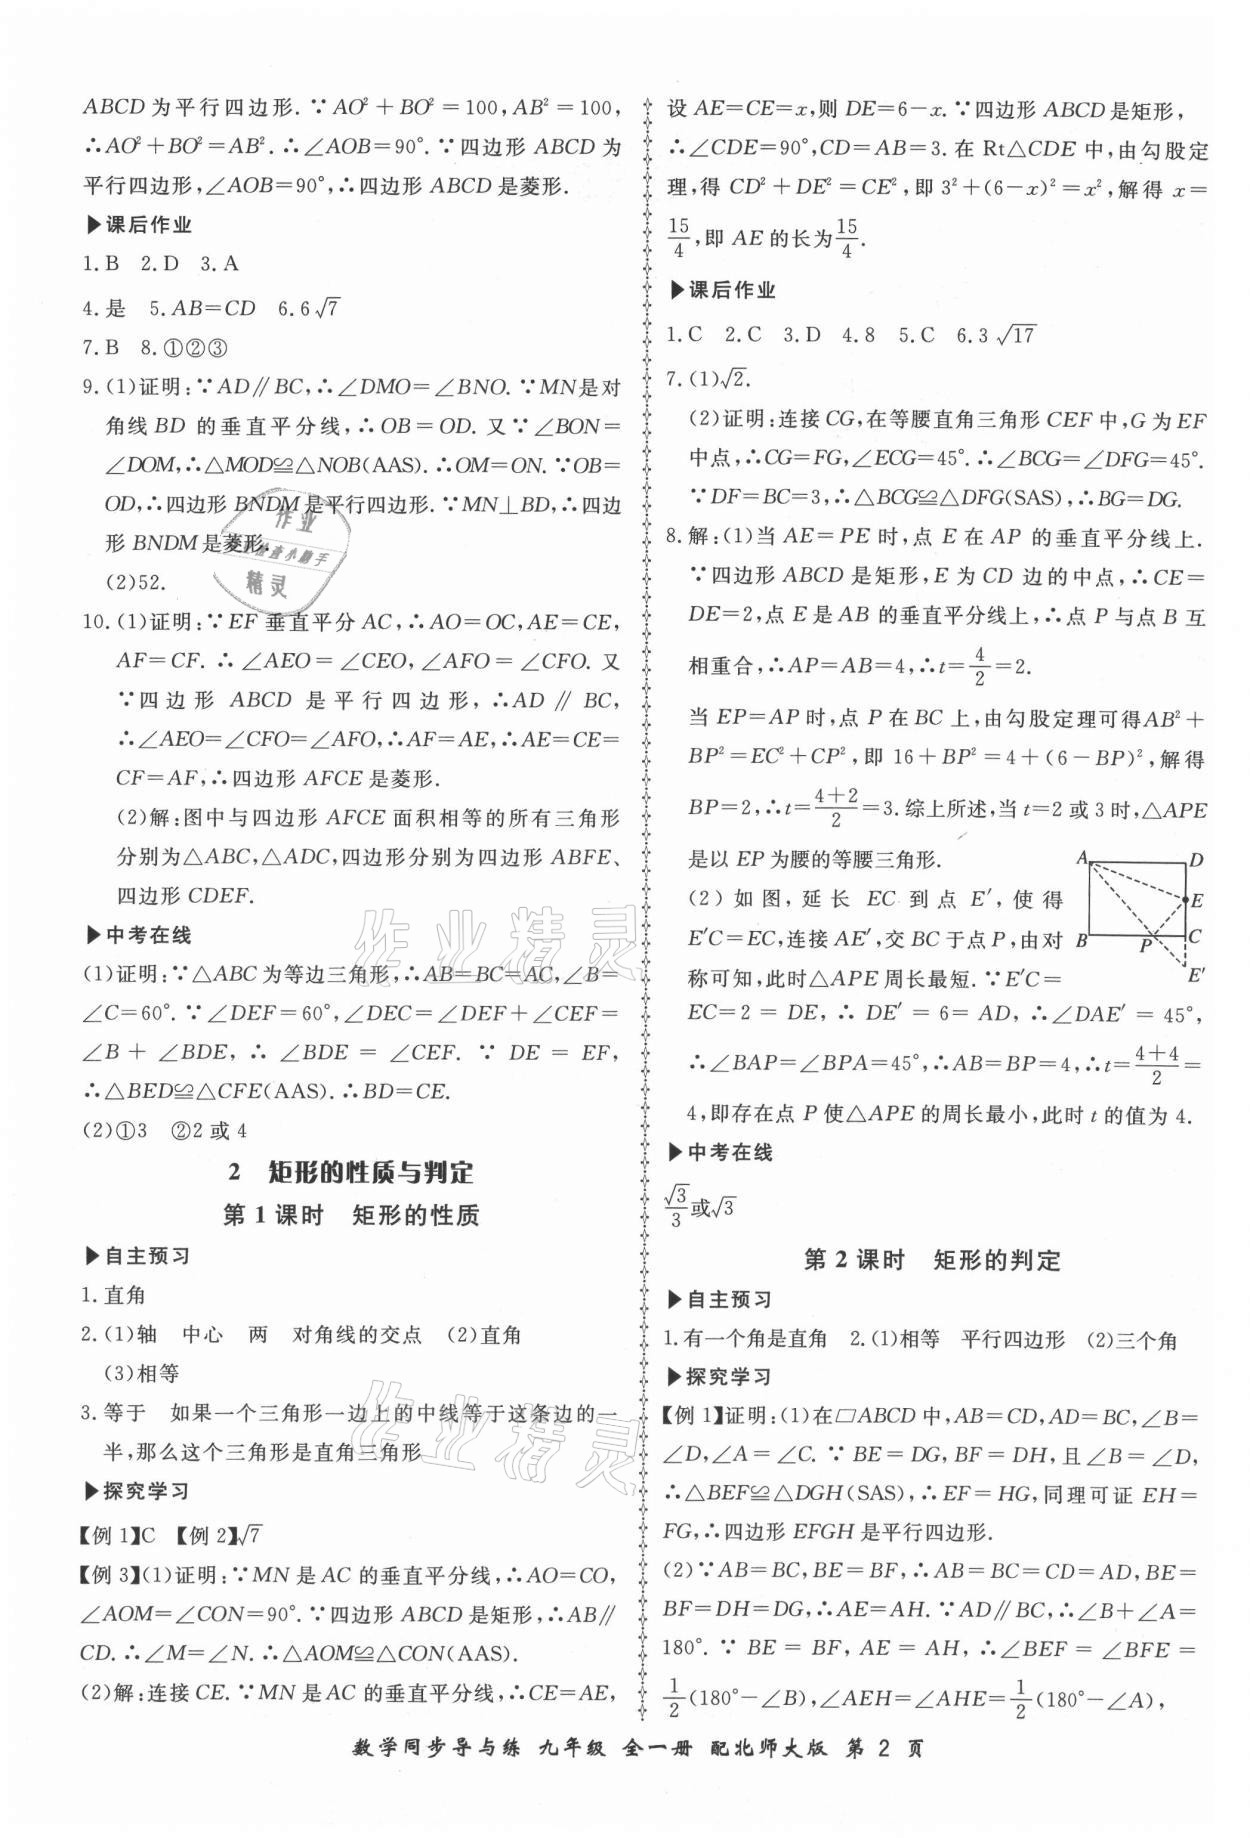 ABCD 为平行四边形.∵AO²+BO²=100,AB²=100,
∴AO²+BO²=AB².∴∠AOB=90°.∵四边形 ABCD 为
平行四边形,∠AOB=90°,∴四边形 ABCD 是菱形.
▶课后作业
1.B 2.D 3.A
4.是 5.AB=CD 6.6√7
7.B 8.①②③
9.(1)证明:∵AD∥BC,∴∠DMO=∠BNO.∵MN是对
角线 BD 的垂直平分线,∴OB=OD.又∵∠BON=
∠DOM,∴△MOD≌△NOB(AAS).∴OM=ON.∵OB=
OD,∴四边形 BNDM 是平行四边形.∵MN⊥BD,∴四边
形 BNDM 是菱形.
(2)52.
10.(1)证明:∵EF 垂直平分 AC,∴AO=OC,AE=CE,
AF=CF.∴∠AEO=∠CEO,∠AFO=∠CFO.又
∵四边形 ABCD 是平行四边形,∴AD∥BC,
∴∠AEO=∠CFO=∠AFO,∴AF=AE,∴AE=CE=
CF=AF,∴四边形 AFCE 是菱形.
(2)解:图中与四边形 AFCE 面积相等的所有三角形
分别为△ABC,△ADC,四边形分别为四边形 ABFE、
四边形 CDEF.
▶中考在线
(1)证明:∵△ABC 为等边三角形,∴AB=BC=AC,∠B=
∠C=60°.∵∠DEF=60°,∠DEC=∠DEF+∠CEF=
∠B+∠BDE,∴∠BDE=∠CEF.∵DE=EF,
∴△BED≌△CFE(AAS).∴BD=CE.
(2)①3 ②2 或 4
2 矩形的性质与判定
第 1 课时 矩形的性质
▶自主预习
1.直角
2.(1)轴 中心 两 对角线的交点 (2)直角
(3)相等
3.等于 如果一个三角形一边上的中线等于这条边的一
半,那么这个三角形是直角三角形
▶探究学习
【例 1】C 【例 2】√7
【例 3】(1)证明:∵MN 是 AC 的垂直平分线,∴AO=CO,
∠AOM=∠CON=90°.∵四边形 ABCD 是矩形,∴AB∥
CD.∴∠M=∠N.∴△AOM≌△CON(AAS).
(2)解:连接 CE.∵MN 是 AC 的垂直平分线,∴CE=AE,
设 AE=CE=x,则 DE=6-x.∵四边形 ABCD 是矩形,
∴∠CDE=90°,CD=AB=3.在 Rt△CDE 中,由勾股定
理,得 CD²+DE²=CE²,即 3²+(6-x)²=x²,解得 x=
15/4,即 AE 的长为15/4.
▶课后作业
1.C 2.C 3.D 4.8 5.C 6.3√17
7.(1)√2.
(2)证明:连接 CG,在等腰直角三角形 CEF 中,G 为 EF
中点,∴CG=FG,∠ECG=45°.∴∠BCG=∠DFG=45°.
∵DF=BC=3,∴△BCG≌△DFG(SAS),∴BG=DG.
8.解:(1)当 AE=PE 时,点 E 在 AP 的垂直平分线上.
∵四边形 ABCD 是矩形,E 为 CD 边的中点,∴CE=
DE=2,点 E 是 AB 的垂直平分线上,∴点 P 与点 B 互
相重合,∴AP=AB=4,∴t=4/2=2.
当 EP=AP 时,点 P 在 BC 上,由勾股定理可得AB²+
BP²=EC²+CP²,即 16+BP²=4+(6-BP)²,解得
BP=2,∴t=(4+2)/2=3.综上所述,当 t=2 或 3 时,△APE
是以 EP 为腰的等腰三角形.
(2)如图,延长 EC 到点 E′,使得
E′C=EC,连接 AE′,交 BC 于点 P,由对
称可知,此时△APE 周长最短.∵E′C=
A D
E
B P C
E′
EC=2=DE,∴DE′=6=AD,∴∠DAE′=45°,
∴∠BAP=∠BPA=45°,∴AB=BP=4,∴t=(4+4)/2=
4,即存在点 P 使△APE 的周长最小,此时 t 的值为 4.
▶中考在线
√3/3或√3
第 2 课时 矩形的判定
▶自主预习
1.有一个角是直角 2.(1)相等 平行四边形 (2)三个角
▶探究学习
【例 1】证明:(1)在▱ABCD 中,AB=CD,AD=BC,∠B=
∠D,∠A=∠C.∵BE=DG,BF=DH,且∠B=∠D,
∴△BEF≌△DGH(SAS),∴EF=HG,同理可证 EH=
FG,∴四边形 EFGH 是平行四边形.
(2)∵AB=BC,BE=BF,∴AB=BC=CD=AD,BE=
BF=DH=DG,∴AE=AH.∵AD∥BC,∴∠B+∠A=
180°.∵BE=BF,AE=AH,∴∠BEF=∠BFE=
1/2(180°-∠B),∠AEH=∠AHE=1/2(180°-∠A),
数学同步导与练 九年级 全一册 配北师大版 第 2 页
作业
检查小助手
精灵
作业精灵
作业精灵